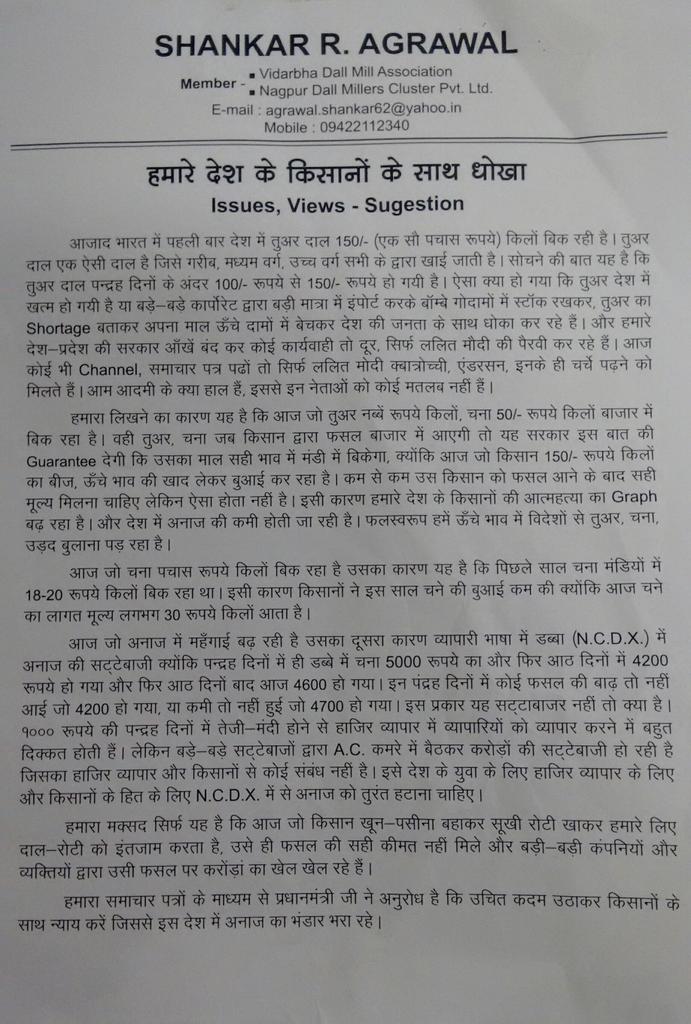 SHANKAR R. AGRAWAL
Member - ▪ Vidarbha Dall Mill Association
▪ Nagpur Dall Millers Cluster Pvt. Ltd.
E-mail : agrawal.shankar62@yahoo.in
Mobile : 09422112340
हमारे देश के किसानों के साथ धोखा
Issues, Views - Sugestion
आजाद भारत में पहली बार देश में तुअर दाल 150/- (एक सौ पचास रूपये) किलों बिक रही है। तुअर
दाल एक ऐसी दाल है जिसे गरीब, मध्यम वर्ग, उच्च वर्ग सभी के द्वारा खाई जाती है। सोचने की बात यह है कि
तुअर दाल पन्द्रह दिनों के अंदर 100/- रूपये से 150/- रूपये हो गयी है। ऐसा क्या हो गया कि तुअर देश में
खत्म हो गयी है या बड़े-बड़े कार्पोरेट द्वारा बड़ी मात्रा में इंपोर्ट करके बॉम्बे गोदामों में स्टॉक रखकर, तुअर का
Shortage बताकर अपना माल ऊँचे दामों में बेचकर देश की जनता के साथ धोका कर रहे हैं। और हमारे
देश-प्रदेश की सरकार आँखें बंद कर कोई कार्यवाही तो दूर, सिर्फ ललित मौदी की पैरवी कर रहे हैं। आज
कोई भी Channel, समाचार पत्र पढों तो सिर्फ ललित मोदी क्वात्रोच्ची, एंडरसन, इनके ही चर्चे पढ़ने को
मिलते हैं। आम आदमी के क्या हाल हैं, इससे इन नेताओं को कोई मतलब नहीं हैं।
हमारा लिखने का कारण यह है कि आज जो तुअर नब्बें रूपये किलों, चना 50/- रूपये किलों बाजार में
बिक रहा है। वही तुअर, चना जब किसान द्वारा फसल बाजार में आएगी तो यह सरकार इस बात की
Guarantee देगी कि उसका माल सही भाव में मंडी में बिकेगा, क्योंकि आज जो किसान 150/- रूपये किलों
का बीज, ऊँचे भाव की खाद लेकर बुआई कर रहा है। कम से कम उस किसान को फसल आने के बाद सही
मूल्य मिलना चाहिए लेकिन ऐसा होता नहीं है। इसी कारण हमारे देश के किसानों की आत्महत्या का Graph
बढ़ रहा है। और देश में अनाज की कमी होती जा रही है। फलस्वरूप हमें ऊँचे भाव में विदेशों से तुअर, चना,
उड़द बुलाना पड़ रहा है।
आज जो चना पचास रूपये किलों बिक रहा है उसका कारण यह है कि पिछले साल चना मंडियों में
18-20 रूपये किलों बिक रहा था। इसी कारण किसानों ने इस साल चने की बुआई कम की क्योंकि आज चने
का लागत मूल्य लगभग 30 रूपये किलों आता है।
आज जो अनाज में महँगाई बढ़ रही है उसका दूसरा कारण व्यापारी भाषा में डब्बा (N.C.D.X.) में
अनाज की सट्टेबाजी क्योंकि पन्द्रह दिनों में ही डब्बे में चना 5000 रूपये का और फिर आठ दिनों में 4200
रूपये हो गया और फिर आठ दिनों बाद आज 4600 हो गया। इन पंद्रह दिनों में कोई फसल की बाढ़ तो नहीं
आई जो 4200 हो गया, या कमी तो नहीं हुई जो 4700 हो गया। इस प्रकार यह सट्टाबाजर नहीं तो क्या है।
१००० रूपये की पन्द्रह दिनों में तेजी-मंदी होने से हाजिर व्यापार में व्यापारियों को व्यापार करने में बहुत
दिक्कत होती हैं। लेकिन बड़े-बड़े सट्टेबाजों द्वारा A.C. कमरे में बैठकर करोड़ों की सट्टेबाजी हो रही है
जिसका हाजिर व्यापार और किसानों से कोई संबंध नहीं है। इसे देश के युवा के लिए हाजिर व्यापार के लिए
और किसानों के हित के लिए N.C.D.X. में से अनाज को तुरंत हटाना चाहिए।
हमारा मक्सद सिर्फ यह है कि आज जो किसान खून-पसीना बहाकर सूखी रोटी खाकर हमारे लिए
दाल-रोटी को इंतजाम करता है, उसे ही फसल की सही कीमत नहीं मिले और बड़ी-बड़ी कंपनियों और
व्यक्तियों द्वारा उसी फसल पर करोंड़ां का खेल खेल रहे हैं।
हमारा समाचार पत्रों के माध्यम से प्रधानमंत्री जी ने अनुरोध है कि उचित कदम उठाकर किसानों के
साथ न्याय करें जिससे इस देश में अनाज का भंडार भरा रहे।